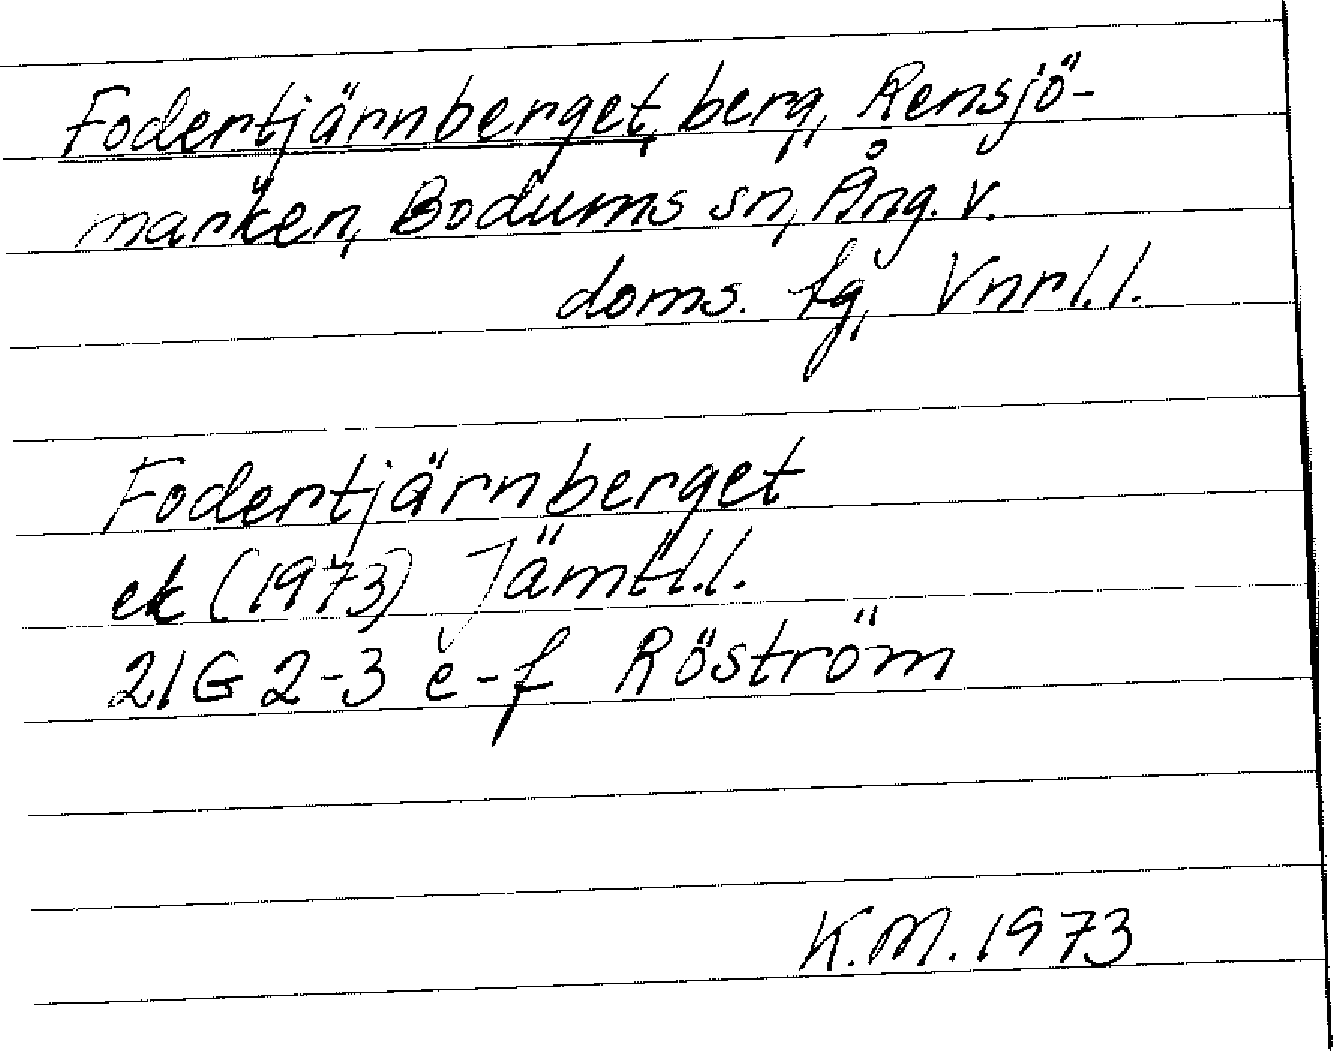 Fodertjärnberget, berg, Rensjö-
marken, Bodums sn, Ång. v.
doms. fg, Vnrl.l.
Fodertjärnberget
ek (1973) Jämtl.l.
21G 2-3 e-f Röström
K.M. 1973